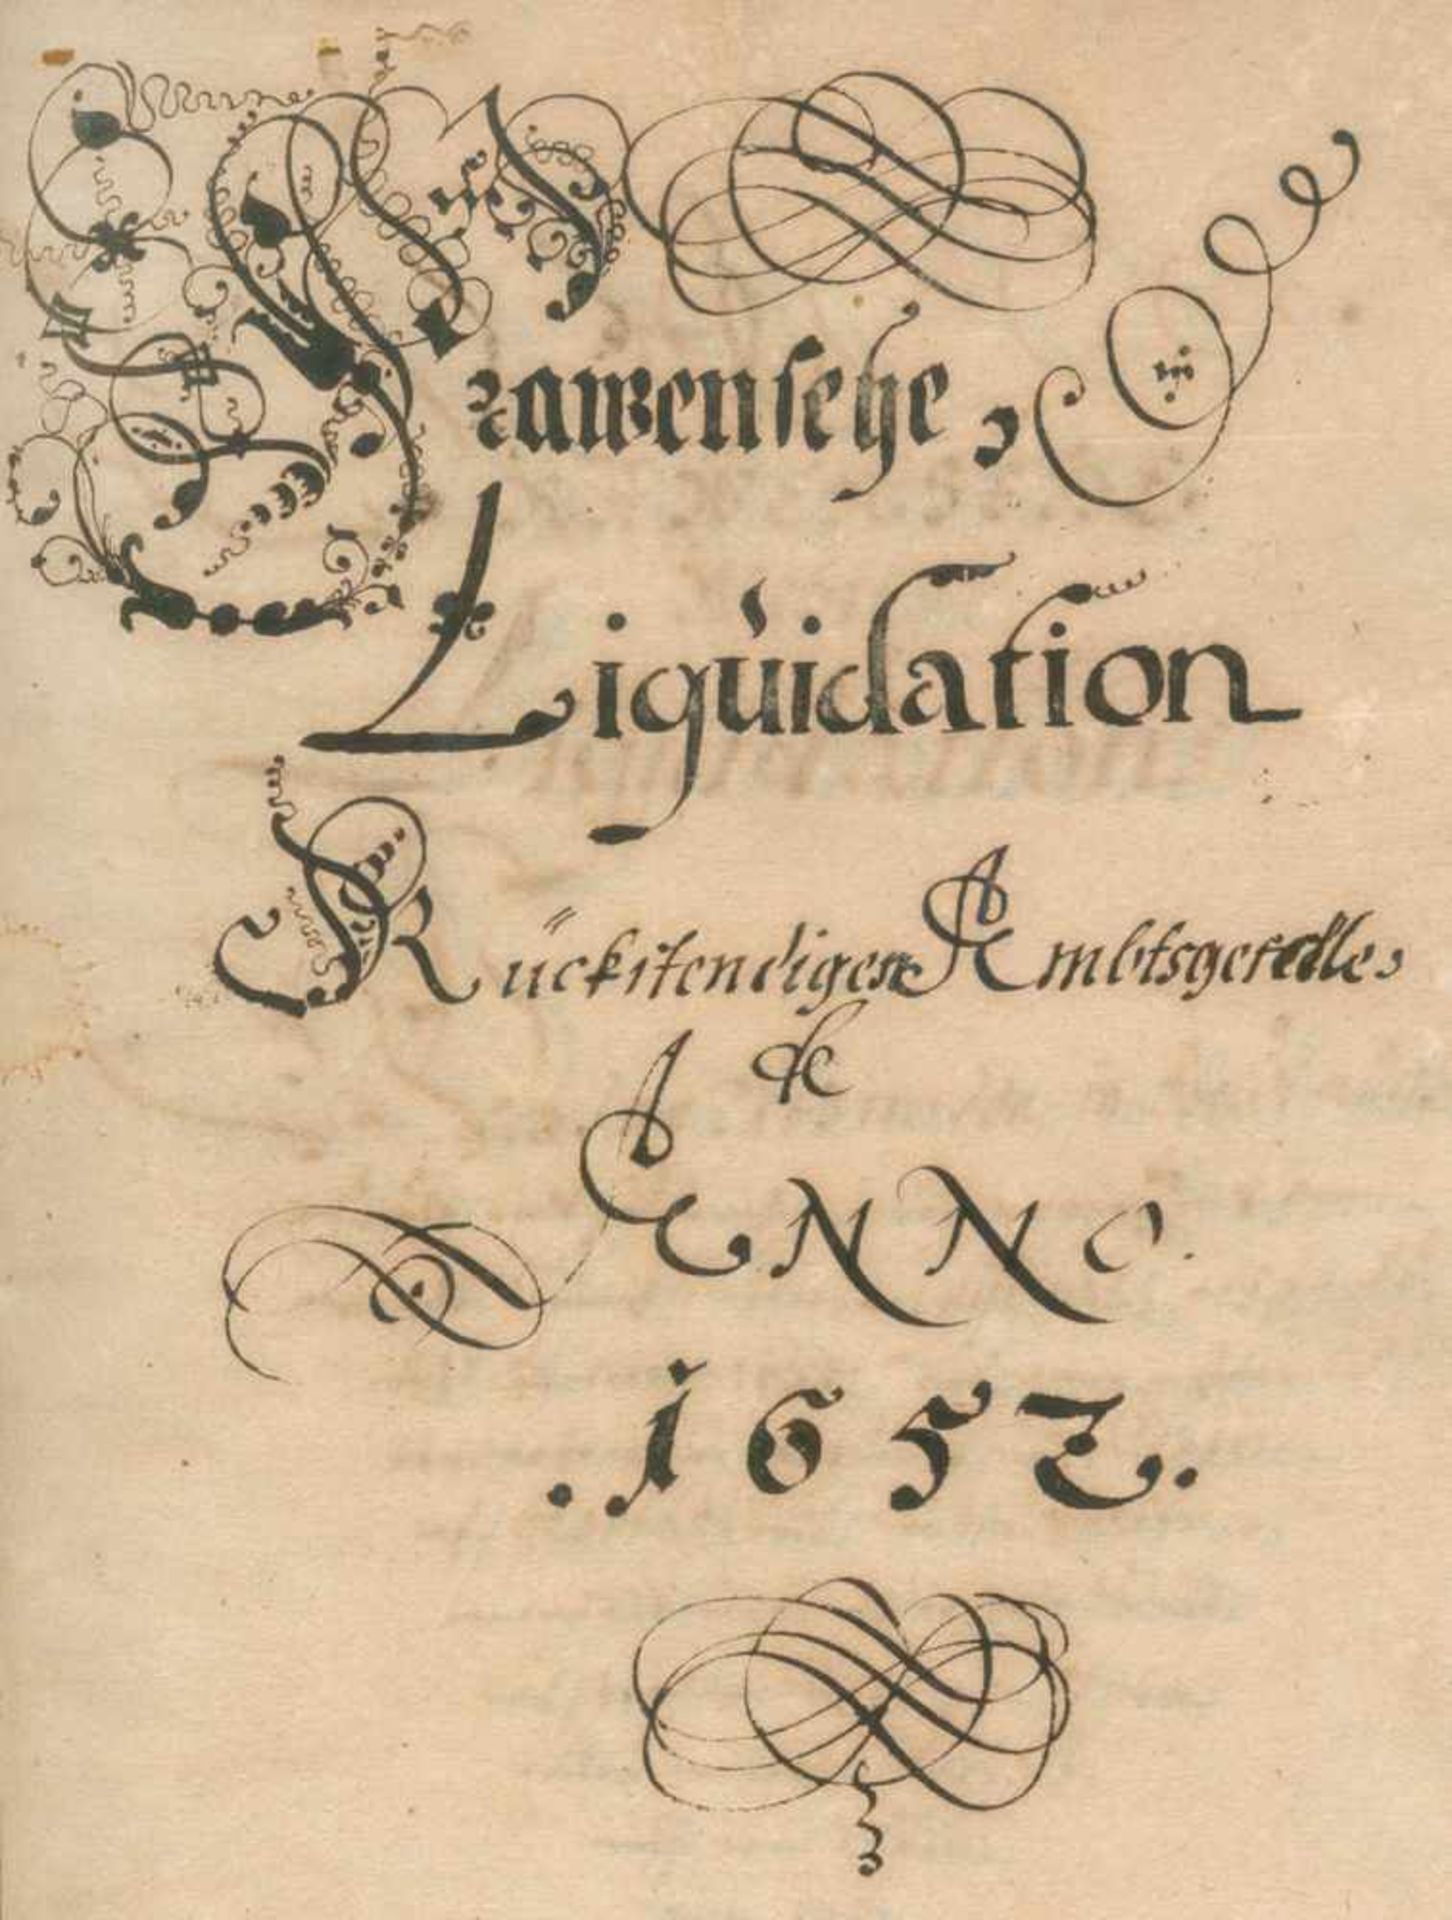 Frawensehe,
Liqúidation
Rückstendigen Ambtsgefelle,
de
ANNO.
.1652.